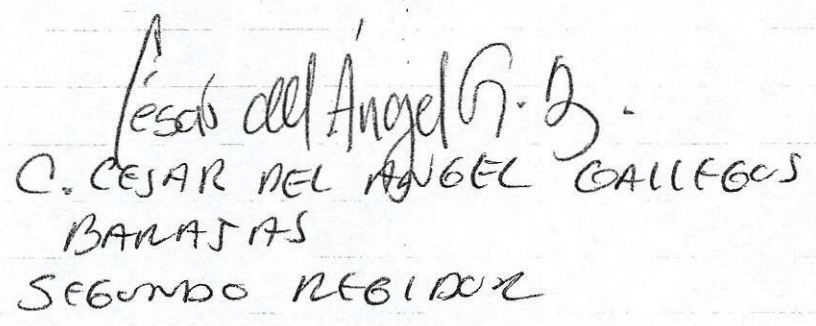 César del Ángel G. B.
C. CESAR DEL ANGEL GALLEGOS
BARAJAS
SEGUNDO REGIDOR